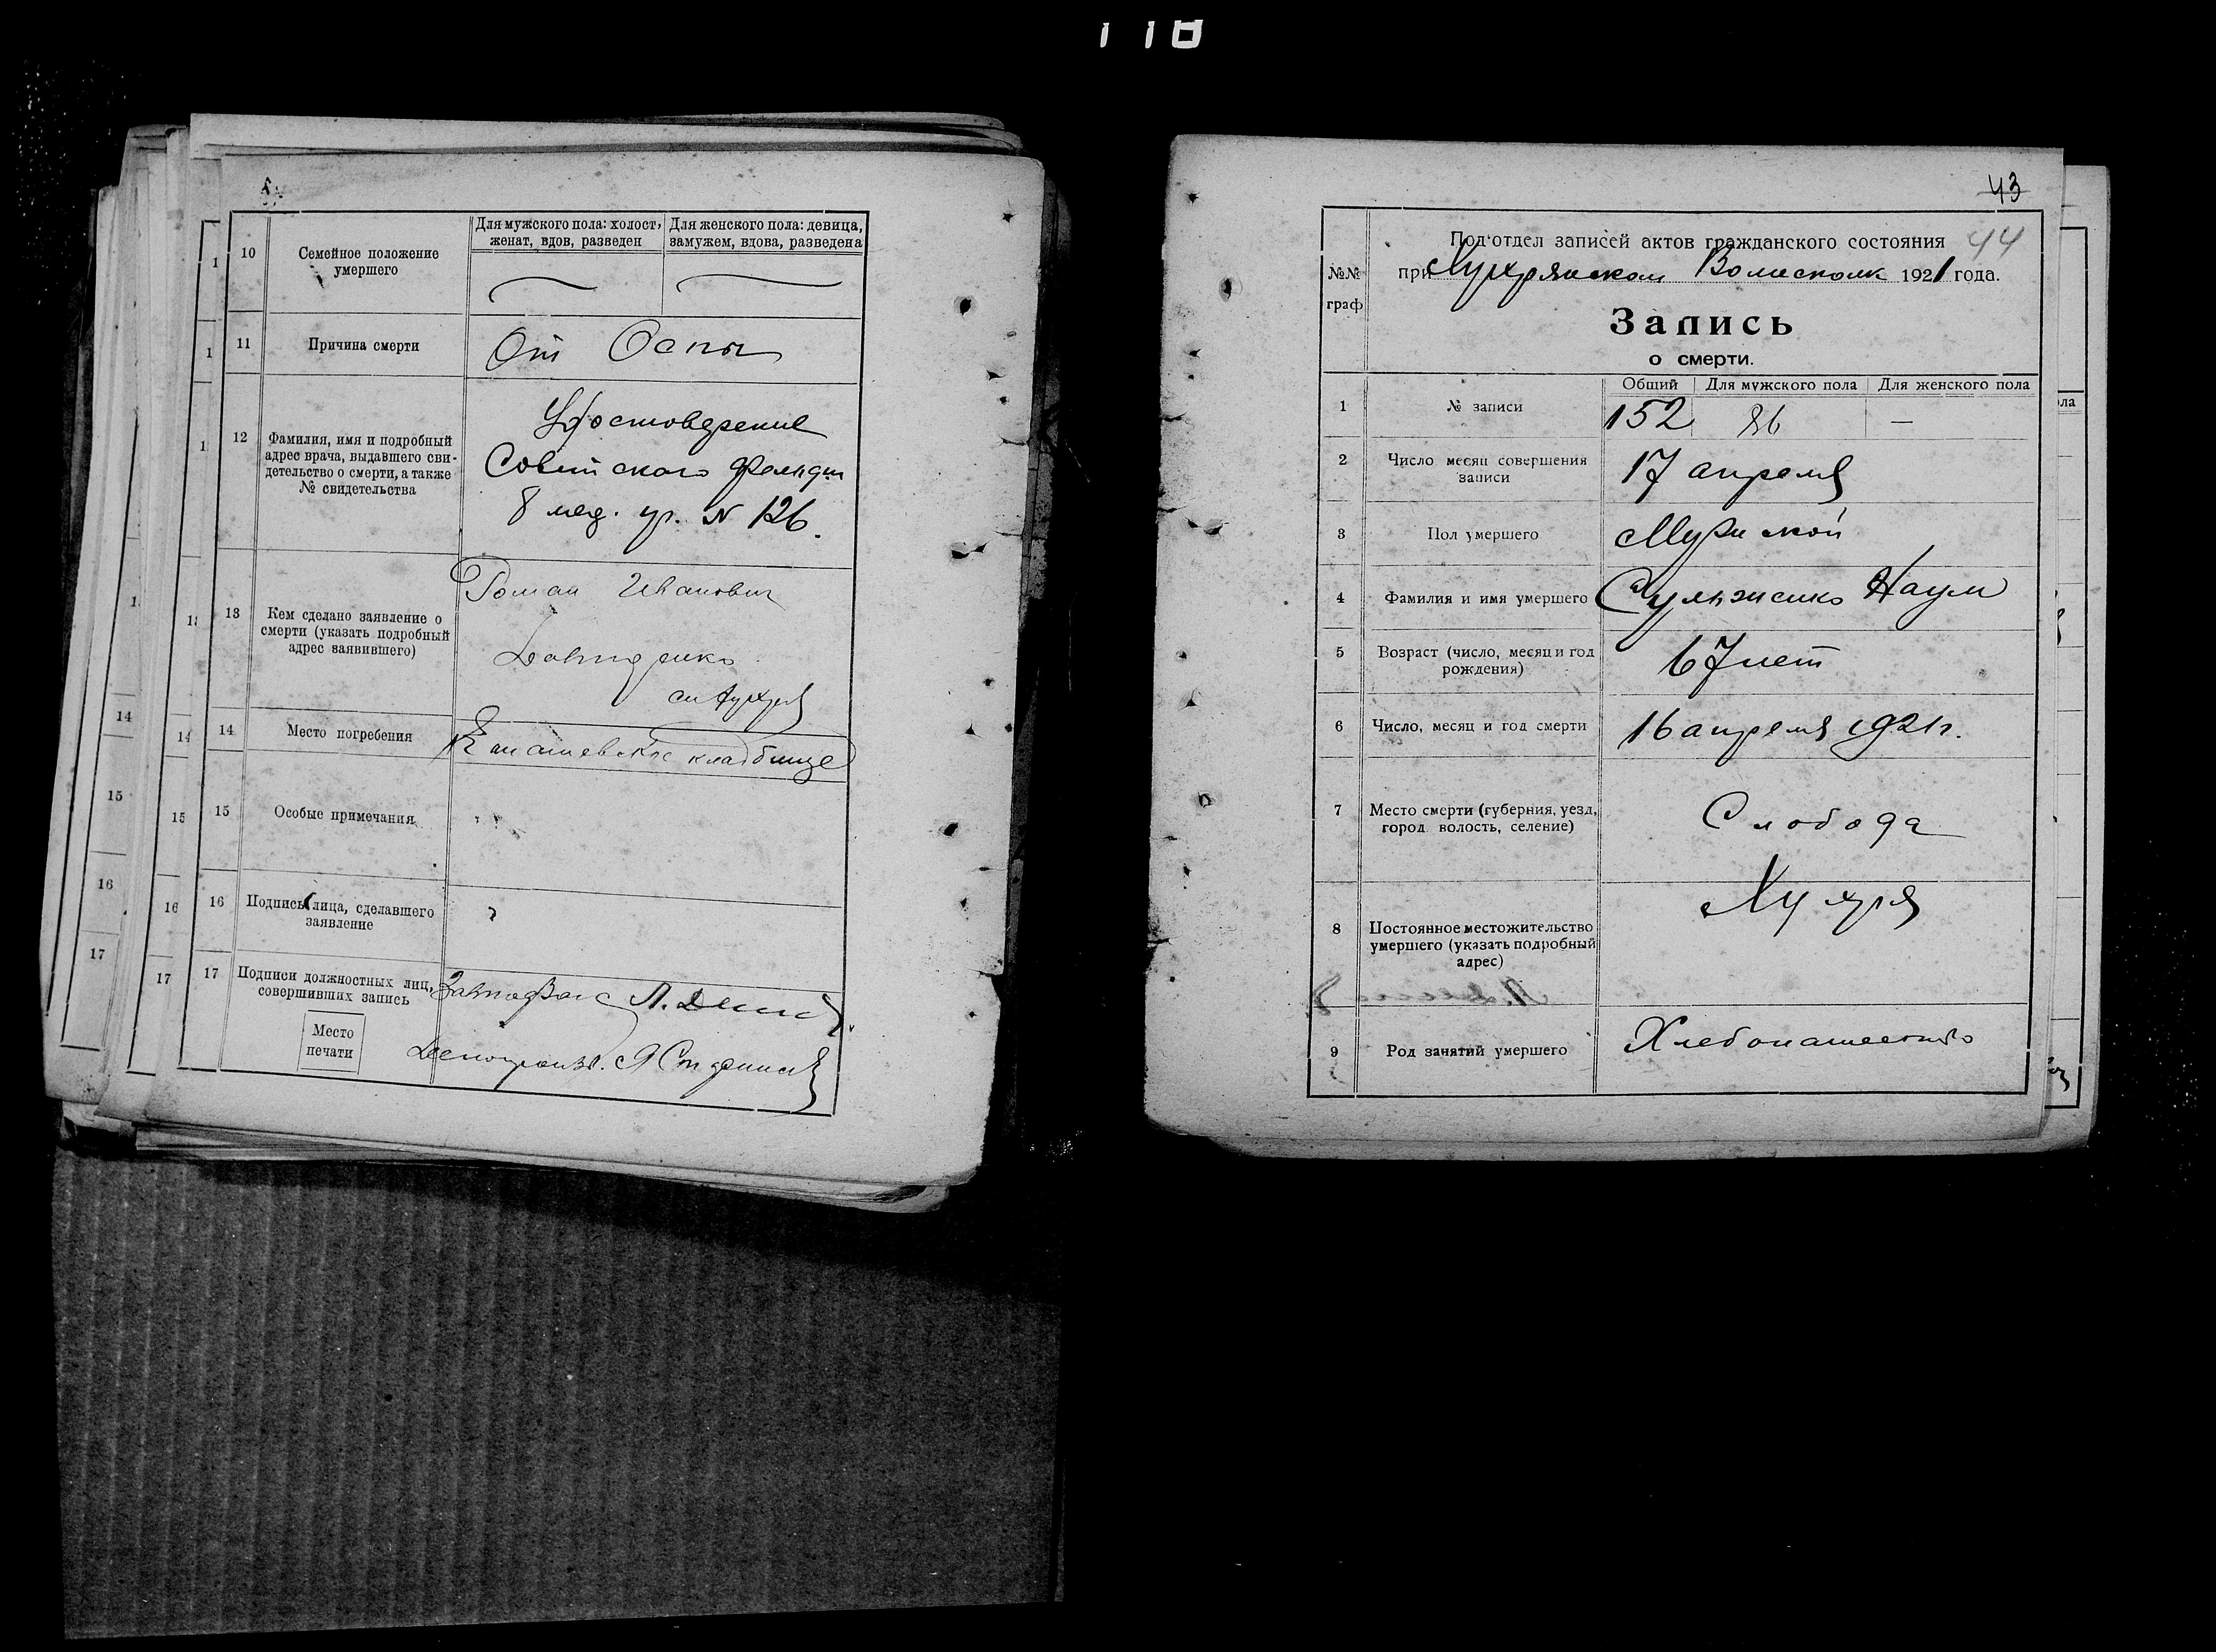 118
10
Семейное положение умершего
Для мужского пола: холост, женат, вдов, разведен
Для женского пола: девица, замужем, вдова, разведена
11
Причина смерти
От Оспы
12
Фамилия, имя и подробный
адрес врача, выдавшего сви-
детельство о смерти, а также
№ свидетельства
Удостоверение
Советского фельдш
8 мед. уч. N 126.
13
Кем сделано заявление о
смерти (указать подробный
адрес заявившего)
Роман Иванович
14
Место погребения
кладбище
15
Особые примечания
16
Подпись лица, сделавшего
заявление
17
Подписи должностных лиц,
совершивших запись
Место
печати
Делопроизв.
1
1
1
1
14
15
16
17
14
15
16
17
43
44
№№
граф
Подотдел записей актов гражданского состояния
при Хухрянском Волисполк 1921 года.
Запись
о смерти.
Общий
Для мужского пола
Для женского пола
1
№ записи
152
86
—
2
Число месяц совершения
записи
17 апреля
3
Пол умершего
Мужской
4
Фамилия и имя умершего
Сульженко Наум
5
Возраст (число, месяц и год
рождения)
67 лет
6
Число, месяц и год смерти
16 апреля 1921 г.
7
Место смерти (губерния, уезд,
город волость, селение)
Слобода
Хухря
8
Постоянное местожительство
умершего (указать подробный
адрес)
9
Род занятий умершего
Хлебопашество
ла